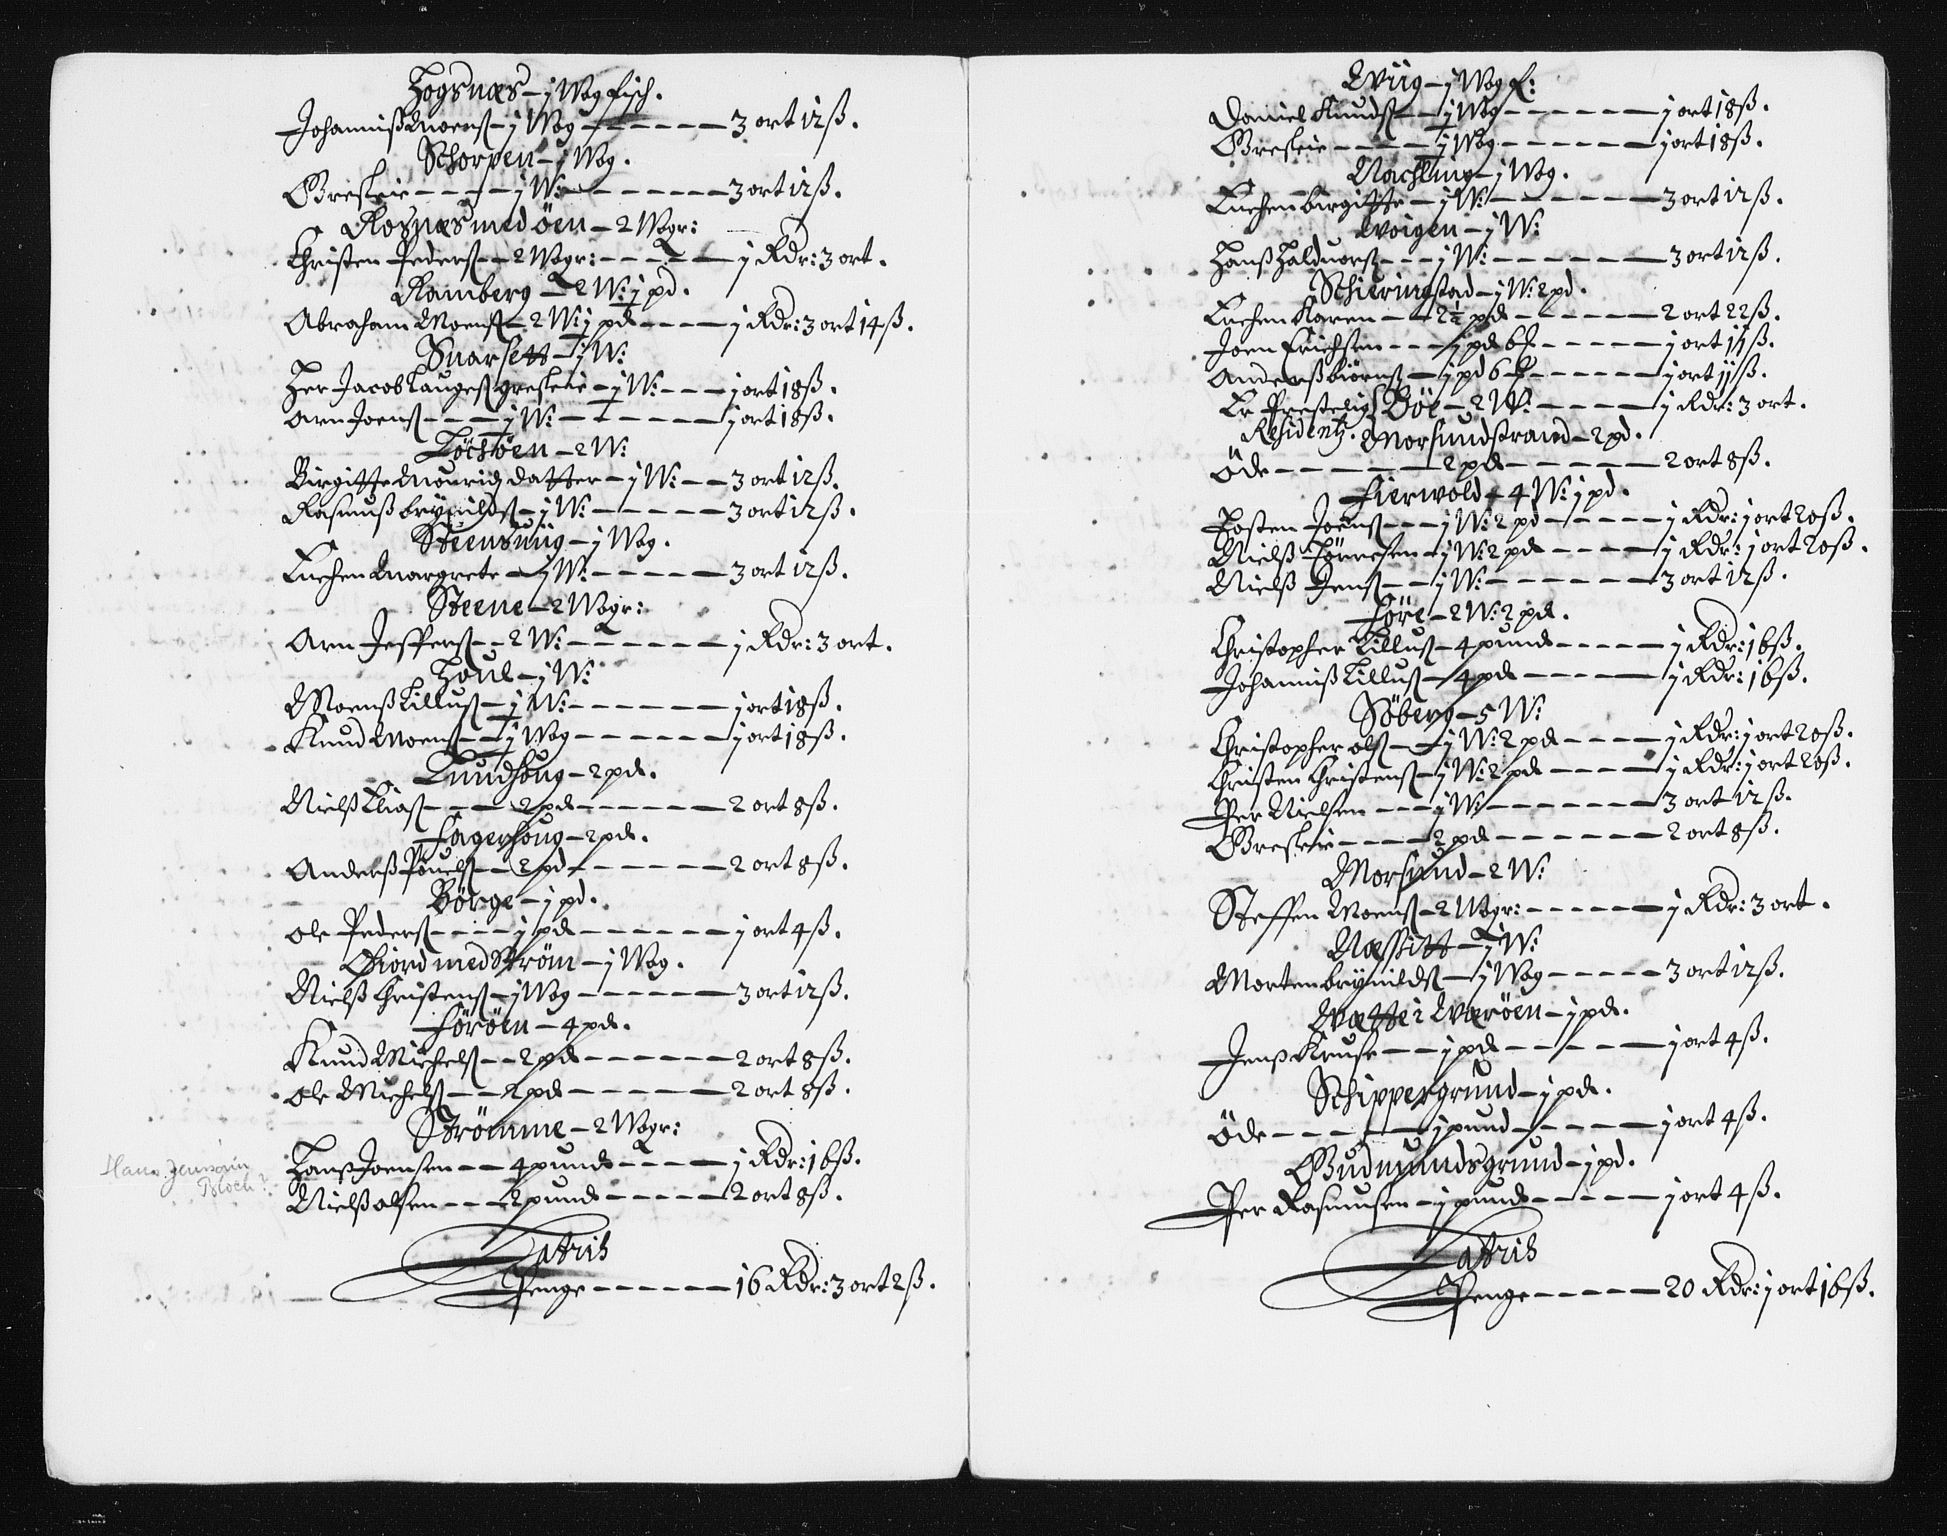 Hogsnæs – j Wog fisch.
Johanniß Moenß – j Wog – 3 ort 12 ß.
Schorpen – j Wog.
Gresleie – j W: – 3 ort 12 ß.
Rosnæs med öen – 2 Wogr:
Christen Peders – 2 Wogr: – j Rdr: 3 ort.
Ramberg – 2 W: j pd.
Abraham Moenß – 2 W: j pd – j Rdr: 3 ort 14 ß.
Suarsett – j W:
Her Jacob Lauges gresleie – j W: – j ort 18 ß.
Arn Joenß – j W: – j ort 18 ß.
Töchöen – 2 W:
Birgitte Mouridz datter – j W: – 3 ort 12 ß.
Rasmuß brynildß – j W: – 3 ort 12 ß.
Steensuiig – j Wog.
Enchen Margrete – j W: – 3 ort 12 ß.
Steene – 2 Wogr:
Arn Jesperß – 2 W: – j Rdr: 3 ort.
Houl – j W:
Moenß Tilluß – j W: – j ort 18 ß.
Knud Moenß – j Wog – j ort 18 ß.
Lundhoug – 2 pd.
Nielß Eliaß – 2 pd – 2 ort 8 ß.
Fagerhoug – 2 pd.
Anderß Pouelß – 2 pd – 2 ort 8 ß.
Börge – j pd.
Ole Pederß – j pd – j ort 4 ß.
Giord med Ström – j Wog.
Nielß Christenß – j Wog – 3 ort 12 ß.
Föröen – 4 pd.
Knud Michelß – 2 pd – 2 ort 8 ß.
Ole Michelß – 2 pd – 2 ort 8 ß.
Strömme – 2 Wogr:
Hanß Joensen – 4 pund – j Rdr: 16 ß.
Hans Jensøn
Bloch?
Nielß olsen – 2 pund – 2 ort 8 ß.
Latriß
Penge – 16 Rdr: 3 ort 2 ß.
Wiig – j Wog f:
Daniel Knudß – j Wog – j ort 18 ß.
Gresleie – j Wog – j ort 18 ß.
Nachling – j Wog.
Enchen birgitte – j W: – 3 ort 12 ß.
Woigen – j W:
Hanß Halduorß – j W: – 3 ort 12 ß.
Schieringstad – j W: 2 pd.
Enchen Karen – 2½ pd – 2 ort 22 ß.
Joen Erichsen – j pd 6 – j ort 11 ß.
Anderß biörnß – j pd 6 – j ort 11 ß.
Er Prestelig Böe – 2 W: – j Rdr: 3 ort.
Residentz. Morsundstrand – 2 pd.
Öde – 2 pd – 2 ort 8 ß.
Fierwold – 4 W: j pd.
Tosten Joenß – j W: 2 pd – j Rdr: j ort 20 ß.
Nielß Törresen – j W: 2 pd – j Rdr: j ort 20 ß.
Nielß Jenß – j W: – 3 ort 12 ß.
Före – 2 W: 2 pd.
Christopher Tilluß – 4 pund – j Rdr: 16 ß.
Johanniß Tilluß – 4 pd – j Rdr: 16 ß.
Söberg – 5 W:
Christopher olß – j W: 2 pd – j Rdr: j ort 20 ß.
Christen Christenß – j W: 2 pd – j Rdr: j ort 20 ß.
Per Nielsen – j W: – 3 ort 12 ß.
Gresleie – 2 pd – 2 ort 8 ß.
Morsund – 2 W:
Steffen Moenß – 2 Wogr: – j Rdr: 3 ort.
Næssitt – j W:
Morten brynildß – j Wog – 3 ort 12 ß.
Wætte i Wæröen – j pd.
Jenß Kruse – j pd – j ort 4 ß.
Schippergrund – j pd.
Öde – j pund – j ort 4 ß.
Gudmundsgrund – j pd.
Per Rasmusen – j pund – j ort 4 ß.
Latriß
Penge – 20 Rdr: j ort 16 ß.